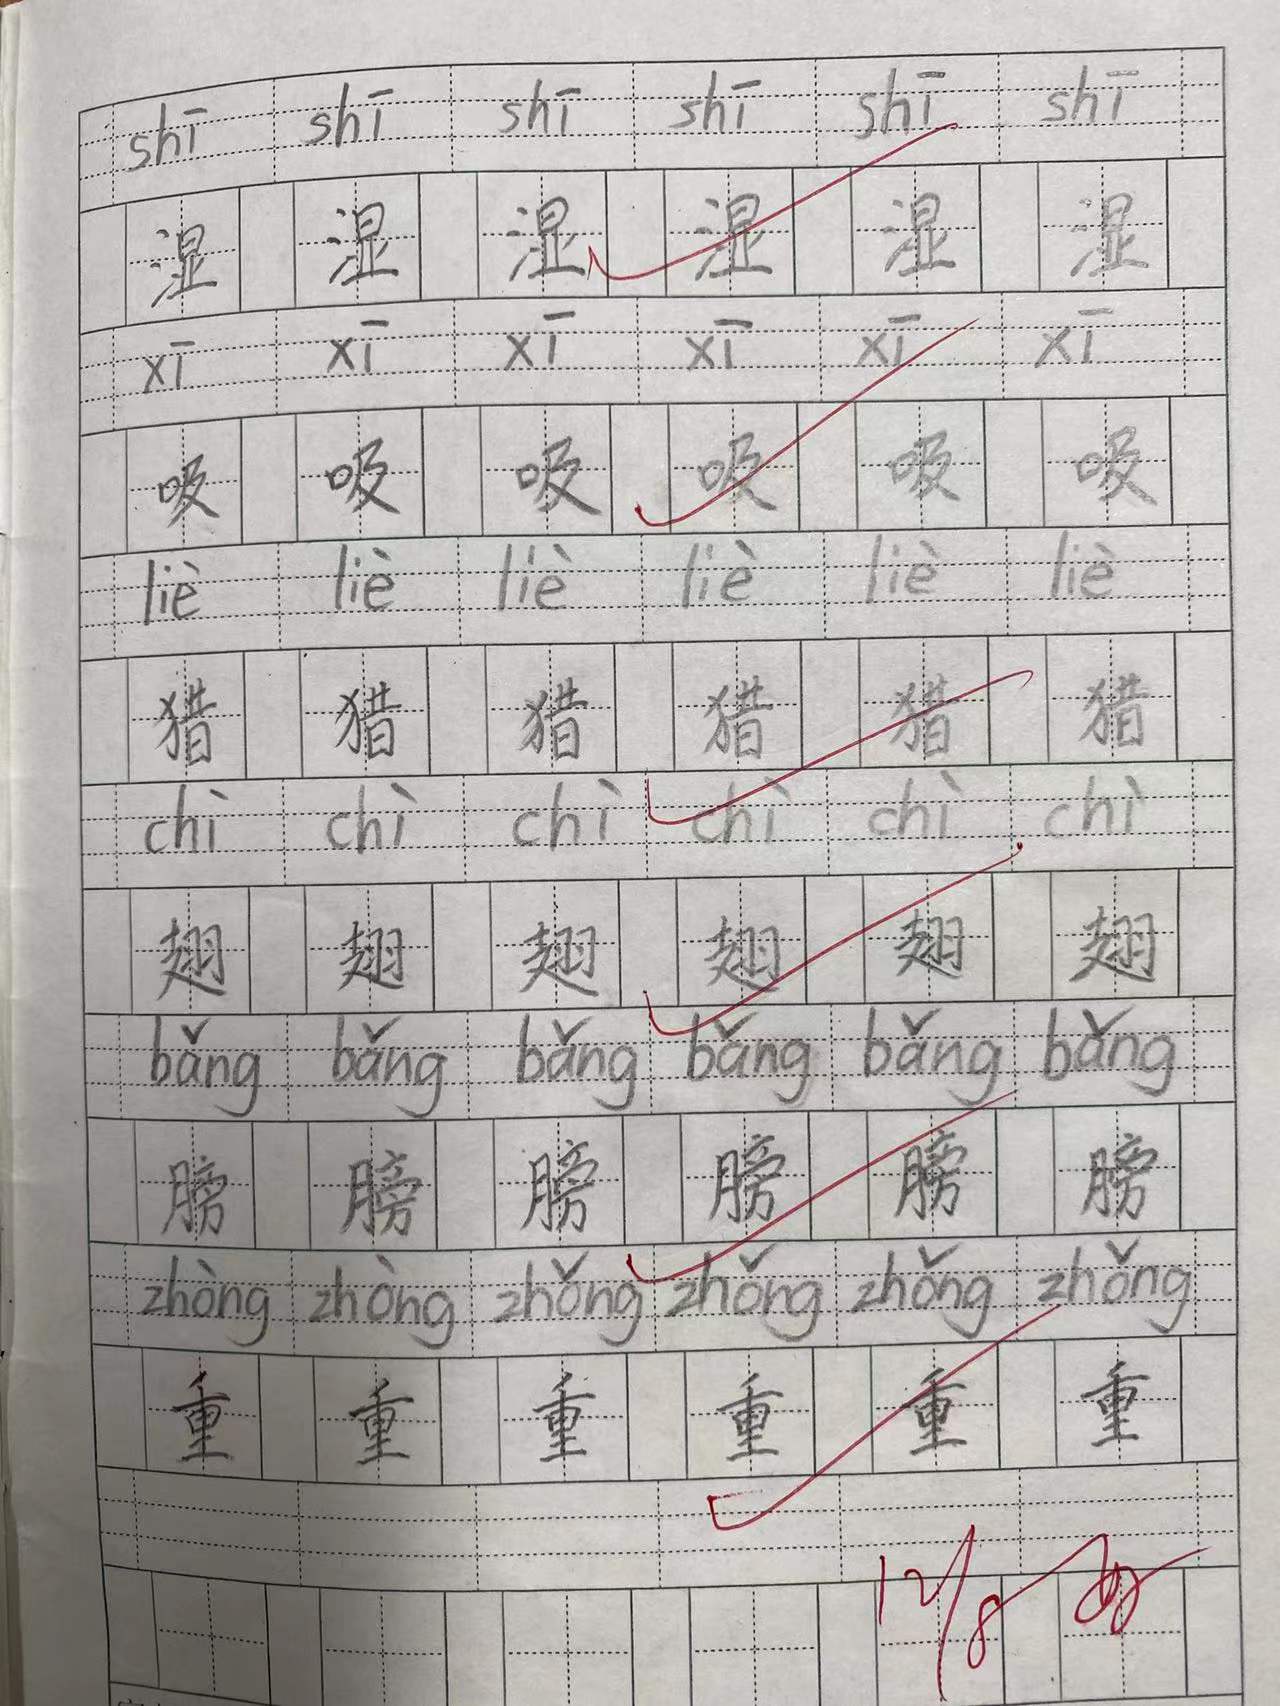 shī shī shī shī shī shī
湿 湿 湿 湿 湿 湿
xī xī xī xī xī xī
吸 吸 吸 吸 吸 吸
liè liè liè liè liè liè
猎 猎 猎 猎 猎 猎
chì chì chì chì chì chì
翅 翅 翅 翅 翅 翅
bǎng bǎng bǎng bǎng bǎng bǎng
膀 膀 膀 膀 膀 膀
zhòng zhòng zhǒng zhǒng zhǒng zhǒng
重 重 重 重 重 重
12/8